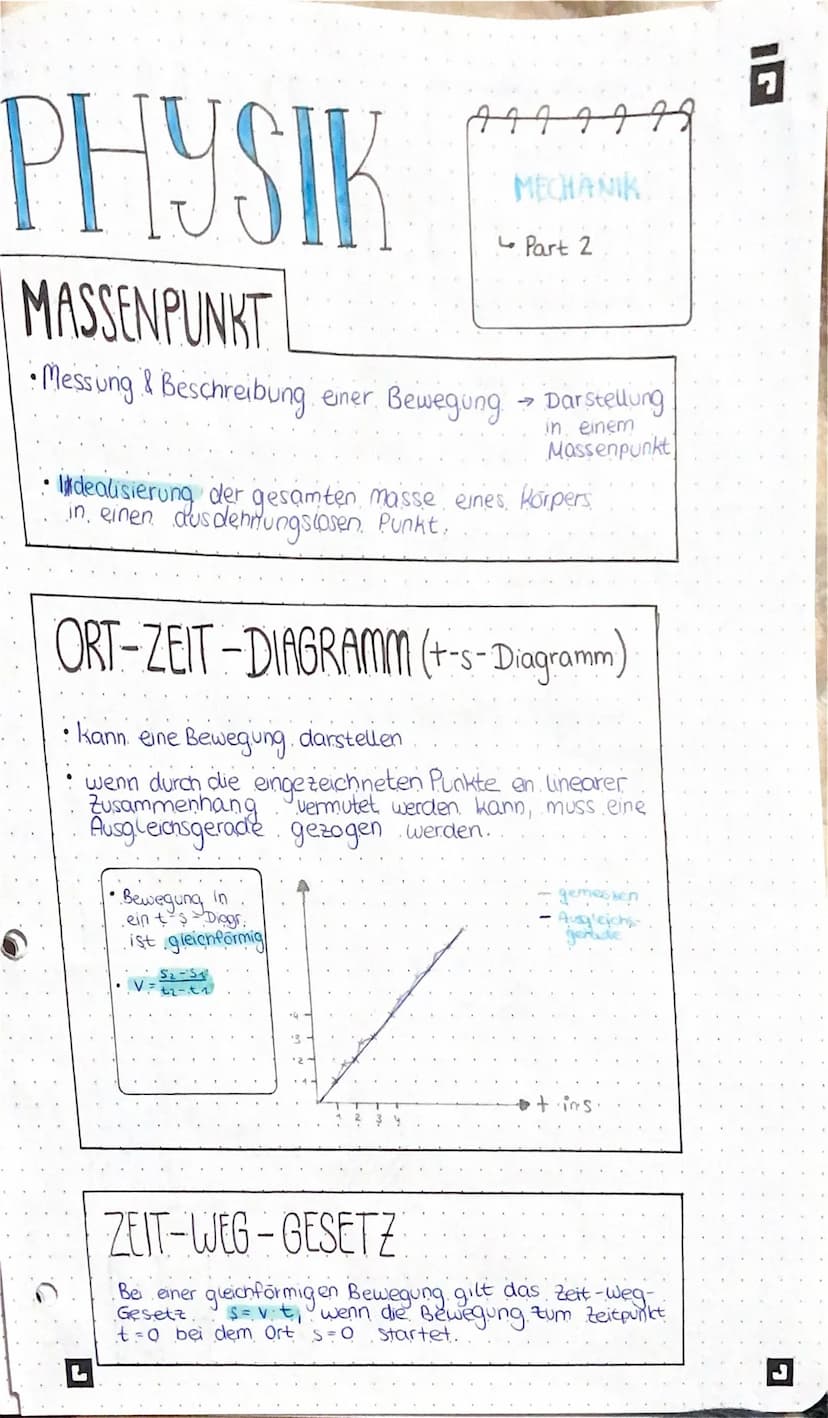 PHYSIK
MECHANIK
↳ Part 2
MASSENPUNKT
• Messung & Beschreibung einer Bewegung → Darstellung
in einem
Massenpunkt
• Idealisierung der gesamten Masse eines Körpers
in einen ausdehnungslosen Punkt.
ORT-ZEIT-DIAGRAMM (t-s-Diagramm)
• kann eine Bewegung darstellen
• wenn durch die eingezeichneten Punkte en linearer
Zusammenhang vermutet werden kann, muss eine
Ausgleichsgerade gezogen werden.
• Bewegung in
ein t-s-Diagr.
ist gleichförmig
• v = s2-s1
t2-t1
– gemessen
– Ausgleichs-
gerade
4
3
2
1
t in s
1 2 3 4
ZEIT-WEG-GESETZ
Bei einer gleichförmigen Bewegung gilt das Zeit-Weg-
Gesetz s = v · t, wenn die Bewegung zum Zeitpunkt
t=0 bei dem Ort s=0 startet.